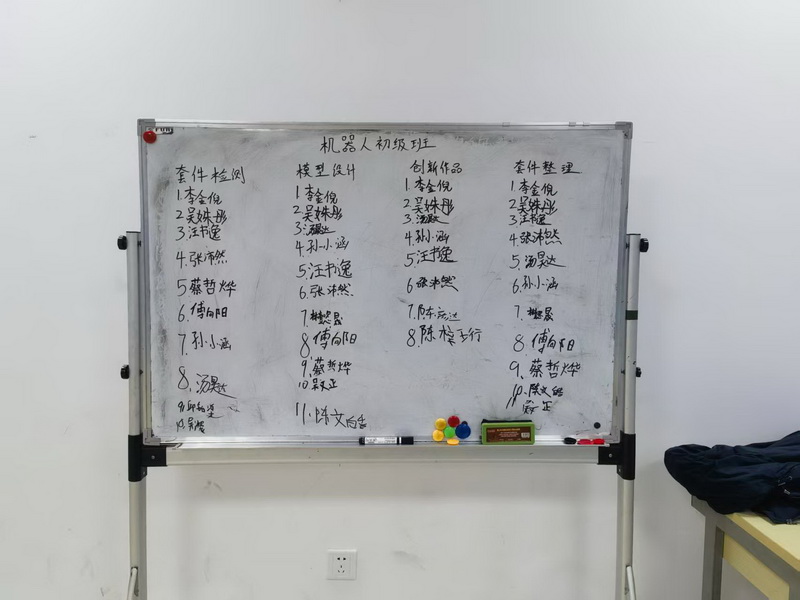 机器人初级班
套件检测
1.李金倪
2.吴姝彤
3.汪书逸
4.张沛然
5.蔡哲烨
6.傅向阳
7.孙小涵
8.汤昊达
模型设计
1.李金倪
2.吴姝彤
3.汤昊达
4.孙小涵
5.汪书逸
6.张沛然
7.
8.傅向阳
9.蔡哲烨
10.
11.陈文皓
创新作品
1.李金倪
2.吴姝彤
3.汤昊达
4.孙小涵
5.汪书逸
6.张沛然
7.陈庆达
8.陈
套件整理
1.李金倪
2.吴姝彤
3.汪书逸
4.张沛然
5.汤昊达
6.孙小涵
7.
8.傅向阳
9.蔡哲烨
10.陈文皓